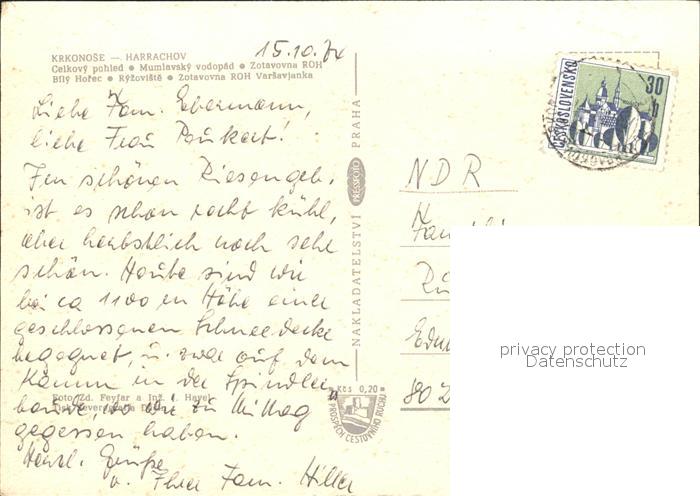 15.10.74
KRKONOŠE — HARRACHOV
Celkový pohled • Mumlavský vodopád • Zotavovna ROH
Bílý Hořec • Rýžoviště • Zotavovna ROH Varšavjanka
Liebe Fam. Ebermann,
liebe Frau
Im schönen Riesengeb.
ist es schon recht kühl,
aber herbstlich noch sehr
schön. Heute sind wir
bei ca 1100 m Höhe einer
geschlossenen Schneedecke
begegnet, u. zwar auf dem
Kamm in der Spindler
baude, wo wir zu Mittag
gegessen haben.
Herzl. Grüße
v. Ihrer Fam. Hiller
Foto Zd. Feyfar a Ing. J. Havel
NAKLADATELSTVÍ PRESSFOTO PRAHA
Kčs 0,20
VE PROSPĚCH CESTOVNÍHO RUCHU
ČESKOSLOVENSKO
30 h
NDR
privacy protection
Datenschutz